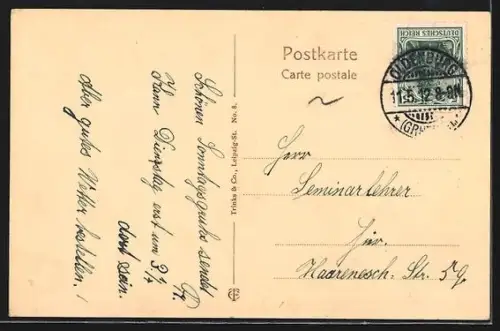 Postkarte
Carte postale
DEUTSCHES REICH
OLDENBURG
11.5.12.8-9N
* (GR
Schönen Sonntagsgruß sendet
Kann Dienstag erst um 9 1/4
dort sein.
Aber gutes Wetter bestellen!
Trinks & Co., Leipzig-St. No. 8.
Herrn
Seminarlehrer
hier.
Haarenesch-Str. 59